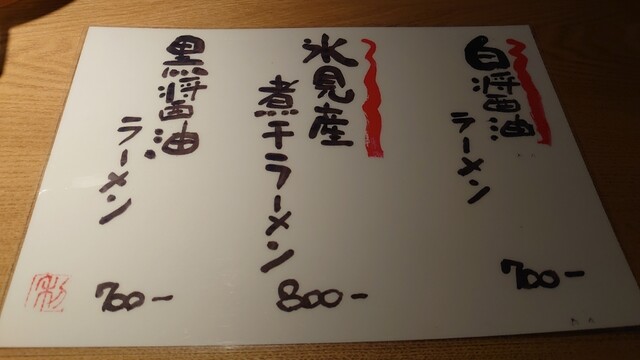 白醤油
ラーメン
700-
氷見産
煮干ラーメン
800-
黒醤油
ラーメン
700-